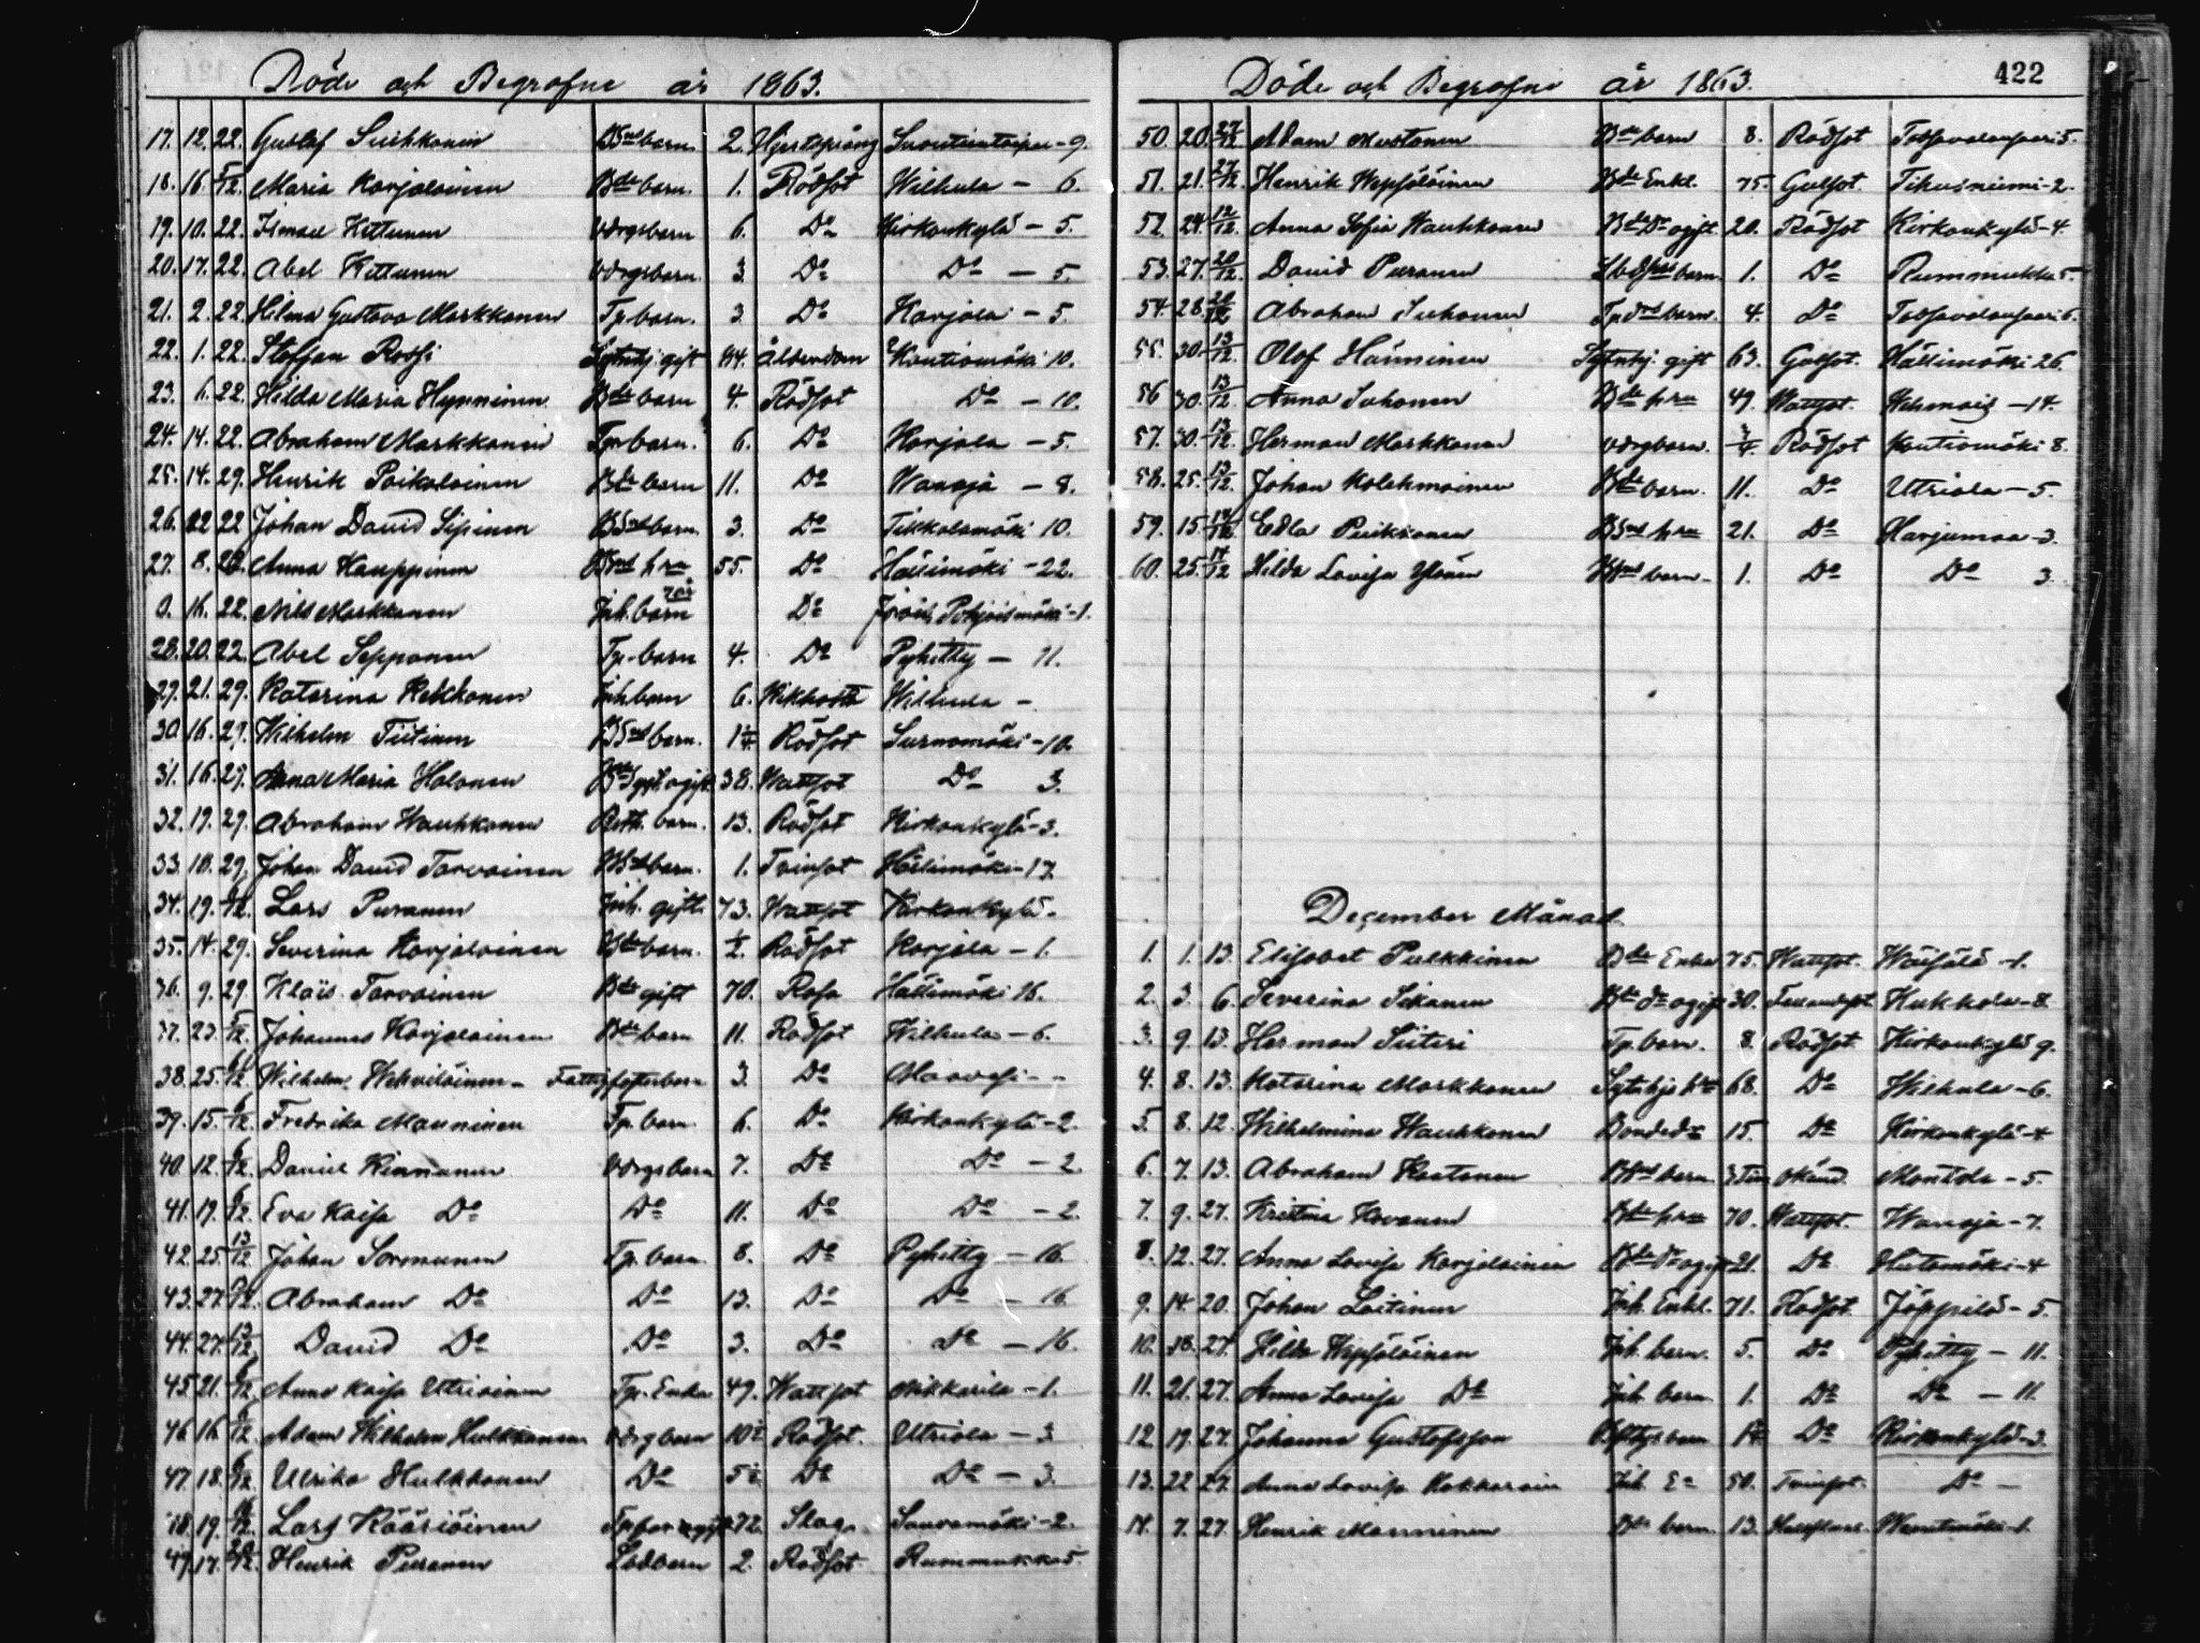 Döde och Begrafne år 1863.
17. 12. 22. Gustaf Suihkonen Bdsbarn 2. Hjertsprång - 9.
18. 16. 5/12. Maria Karjalainen Bde barn. 1. Rödsot Wilhula - 6.
19. 10. 22. Ismael Kettunen vdrgsbarn 6. Do Kirkonkylä - 5.
20. 17. 22. Abel Kettunen vdrgsbarn. 3 Do Do - 5.
21. 2. 22. Hilma Gustava Markkanen Tp. barn. 3. Do Karjala - 5.
22. 1. 22. Staffan Rossi Sytnhj. gift 84. Ålderdom Koutiomäki 10.
23. 6. 22. Hilda Maria Hynninen Bde barn 4. Rödsot Do - 10.
24. 14. 22. Abraham Markkanen Tp. barn. 6. Do Karjala - 5.
25. 14. 29. Henrik Poikolainen Bde barn 11. Do Wanaja - 8.
26. 22 22 Johan David Sipinen barn. 3. Do Tikkalamäki 10.
27. 8. 22. Anna Kauppinen hru 55. Do Hällimäki - 22.
0. 16. 22. Nils Markkanen Inh. barn Do Jrois, Pohjoismäki - 1.
28. 20. 22. Abel Sepponen Tp. barn 4. Do Pyhitty - 11.
29. 21. 29. Katarina Kekkonen Inh barn 6. Kikhosta Wilhula -
30. 16. 29. Wilhelm Tiitinen barn. 1 1/4 Rödsot Surnomäki - 10.
31. 16. 29. Anna Maria Holonen ogift 38. Wattsot Do 3.
32. 19. 29. Abraham Hauhkonen barn. 13. Rödsot Kirkonkylä - 3.
33. 10. 29. Johan David Tarvainen barn. 1. Tvinsot Hällimäki - 17
34. 19. 6/12. Lars Puranen Inh. gift. 73. Wattsot Kirkonkylä -
35. 14. 29. Severina Karjalainen Bde barn. 1/2. Rödsot Karjala - 1.
36. 9. 29. Klais Tarvainen Bde gift 70. Rosa Hällimäki 16.
37. 23. 5/12. Johannes Karjalainen Bde barn 11. Rödsot Wilhula - 6.
38. 25. 6/12. Wilhelm Wehviläinen - 3. Do Maavesi - -
39. 15. 6/12. Fredrika Manninen Tp. barn 6. Do Kirkonkylä - 2.
40. 12. 6/12. Daniel Kinnanen vdrgsbarn 7. Do Do - 2.
41. 19. 6/12. Eva Kaisa Do Do 11. Do Do - 2.
42. 25. 13/12 Johan Sormunen Tp. barn. 8. Do Pyhitty - 16.
43. 27. Abraham Do Do 13. Do Do - 16.
44. 27. 13/12 David Do Do 3. Do Do - 16.
45. 21. 6/12 Anna Kaisa Utriainen Tp. Enka 49. Wattsot Nikkarila - 1.
46. 16. 6/12. Adam Wilhelm Hulkkonen vdrgbarn 10 1/2 Rödsot. Utriola - 3
47. 18. 6/12. Ulrika Hulkkonen Do 5 1/2 Do Do - 3.
48. 19. 6/12. Lars Kääriäinen 72. Slag Sauvamäki - 2.
49. 17. 20/12. Henrik Puranen barn 2. Rödsot Rummukka 5.
Döde och Begrafne år 1863. 422
50. 20. 27/12 Adam Mustonen Bde barn 8. Rödsot 5.
51. 21. 27/12. Henrik Hepsöläinen Bde Enkl. 75. Gulsot. Tihusniemi - 2.
52. 24. 12/12. Anna Sofia Hauhkonen Bde Dr ogift. 20. Rödsot Kirkonkylä - 4.
53. 27. 20/12. David Puranen barn. 1. Do Rummukka 5.
54. 28. 20/12 Abraham Suhonen barn. 4. Do 6.
55. 30. 13/12. Olof Hänninen Sytnhj. gift 63. Gulsot. Hällimäki 26.
56 30. 13/12. Anna Suhonen Bde hru 49. Wattsot. Wehmais - 14.
57. 30. 13/12. Herman Markkanen vdrgbarn. 3/4. Rödsot Koutiomäki 8.
58. 25. 13/12. Johan Kolehmainen Bde barn. 11. Do Utriola - 5.
59. 15. Edla Puikkonen hru 21. Do Harjumaa - 3.
60. 25. 14/12 Hilda Lovisa Ylönen barn - 1. Do Do 3.
December Månad.
1. 1. 13. Elisabet Pulkkinen Bde Enka 75. Wattsot. Wäisälä - 1.
2. 3. 6. Severina Sikanen Bde dr ogift 30. Hukkola - 8
3. 9. 13. Herman Siitiri Tp. barn. 8. Rödsot Kirkonkylä 9.
4. 8. 13. Katarina Markkanen Sytnhjs hru 68. Do Wilhula - 6.
5. 8. 12. Wilhelmina Hauhkonen Bondedr 15. Do Kirkonkylä - 4
6. 7. 13. Abraham Raatanen barn 3 tim okänd. Montola - 5.
7. 9. 27. Kristina Kovanen Bde hru 70. Wattsot. Wanaja - 7.
8. 12. 27. Anna Lovisa Karjalainen Bde dr ogift 21. Do Hiitomäki - 4
9. 14. 20. Johan Laitinen Inh. Enkl. 71. Rödsot Jäppilä - 5.
10. 18. 27. Hilda Hepsöläinen Inh. barn. 5. Do Pyhitty - 11.
11. 21. 27. Anna Lovisa Do Inh. barn 1. Do Do - 11.
12 19. 27. Johanna Gustafsson barn Do Kirkonkylä - 3.
13. 22 27. Anna Lovisa Inh. Ea 50. Tvinsot. Do -
14. 7. 27. Henrik Manninen Bde barn. 13. - 1.